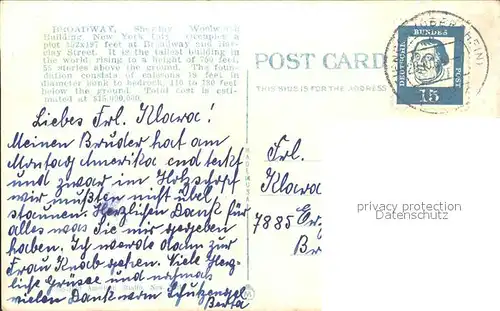 BROADWAY, Showing Woolworth
Building, New York City. Occupies a
plot 152x197 feet at Broadway and Bar-
clay Street. It is the tallest building in
the world, rising to a height of 750 feet,
55 stories above the ground. The foun-
dation consists of caissons 19 feet in
diameter sunk to bedrock, 110 to 130 feet
below the ground. Total cost is esti-
mated at $15,000,000.
Liebes Frl. Klara!
Meinen Bruder hat am
Montag Amerika entdeckt
und zwar im Holzschopf
wir mußten nicht übel
staunen. Herzlichen Dank für
alles was Sie mir gegeben
haben. Ich werde dann zur
Frau Knab gehen. Viele Herz-
liche Grüsse und nochmals
vielen Dank vom Schutzengel
Berta
POST CARD
THIS SIDE IS FOR THE ADDRESS
DEUTSCHE BUNDES POST
15
Frl.
Klara
7885
privacy protection
Datenschutz